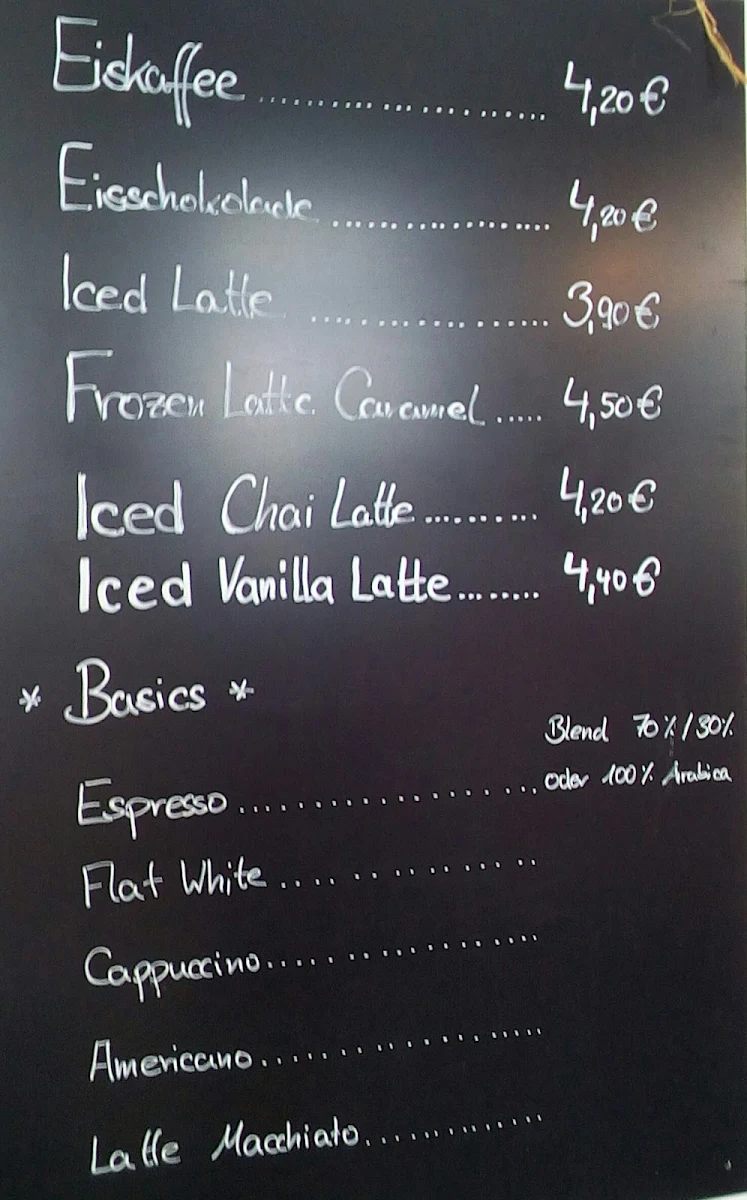 Eiskaffee .......................... 4,20 €
Eisschokolade .................... 4,20 €
Iced Latte ...................... 3,90 €
Frozen Latte Caramel ..... 4,50 €
Iced Chai Latte .......... 4,20 €
Iced Vanilla Latte ........ 4,40 €
* Basics *
Blend 70%/30%
Espresso ........................ oder 100% Arabica
Flat White ....................
Cappuccino ......................
Americano ......................
Latte Macchiato ................